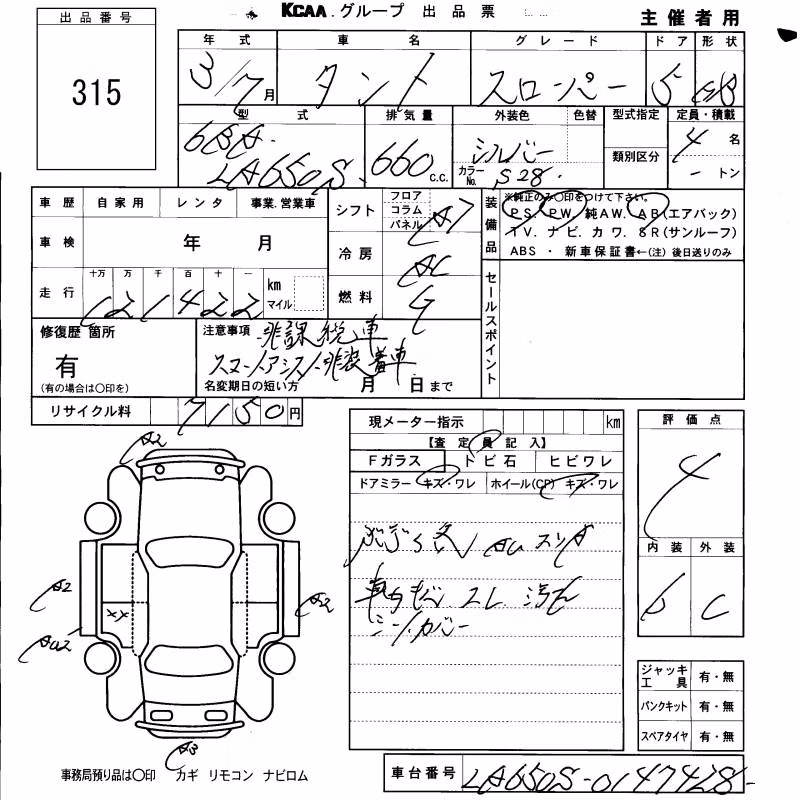 KCAA.グループ 出品票
主催者用
出品番号
315
年式 車名 グレード ドア 形状
3/7月 タント スローパー 5
型式 排気量 外装色 色替 型式指定 定員・積載
6BA- LA650S 660c.c. シルバー 4名
カラーNo. S28 類別区分 -トン
車歴 自家用 レンタ 事業.営業車
シフト フロア コラム パネル AT
装備品 ※純正のみ〇印をつけて下さい。
PS. PW. 純AW. AB(エアバック)
TV. ナビ. カワ. SR(サンルーフ)
ABS ・ 新車保証書←(注) 後日送りのみ
車検 年 月
冷房 AC
走行 十万 万 千 百 十 一 km マイル
121422
燃料 G
セールスポイント
修復歴 箇所
有
(有の場合は〇印を)
注意事項 非課税車
スマートアシスト非装着車
名変期日の短い方 月 日まで
リサイクル料 7150円
現メーター指示 km
【査定員記入】
Fガラス トビ石 ヒビワレ
ドアミラー キズ・ワレ ホイール(CP) キズ・ワレ
スリキ
車内 スレ 汚れ
シートカバー
評価点
4
内装 外装
C
A2
A2
A2
AU2
XX
A3
ジャッキ工具 有・無
パンクキット 有・無
スペアタイヤ 有・無
事務局預り品は〇印 カギ リモコン ナビロム
車台番号 LA650S-0147428-